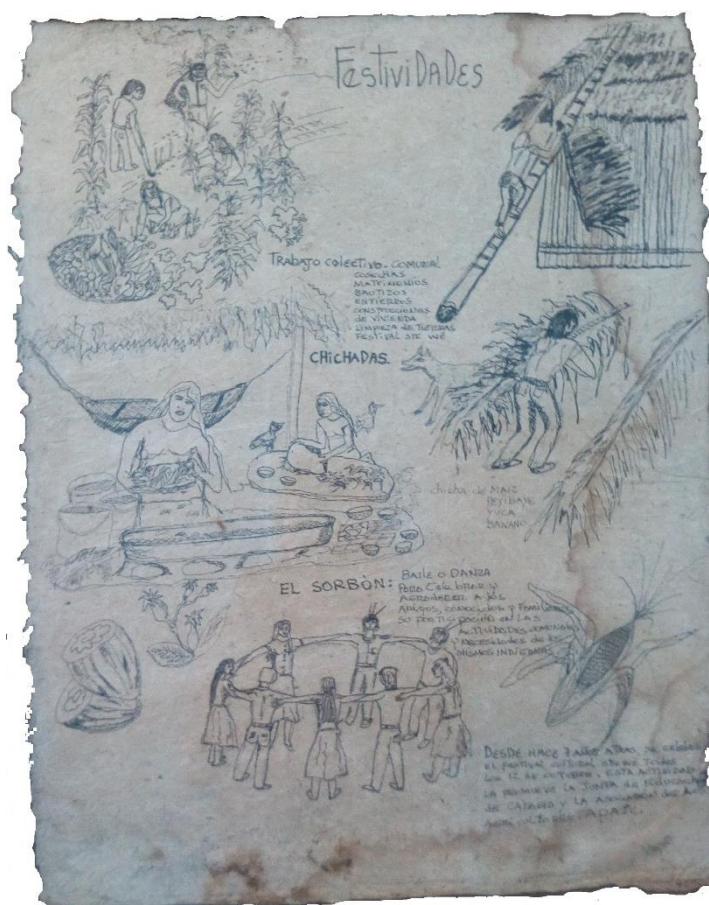 FESTIVIDADES
TRABAJO COLECTIVO - COMUNAL
COSECHAS
MATRIMONIOS
BAUTIZOS
ENTIERROS
CONSTRUCCIONES
DE VIVIENDA
LIMPIEZA DE TIERRAS
FESTIVAL STE WË
CHICHADAS.
chicha de MAIZ
PEYIBAYE
YUCA
BANANO
EL SORBÓN: BAILE O DANZA
PARA CELEBRAR Y
AGRADECER A LOS
AMIGOS, CONOCIDOS Y
SU PARTICIPACIÓN EN LAS
ACTIVIDADES
Y NECESIDADES DE LOS
MISMOS INDÍGENAS
DESDE HACE 7 AÑOS ATRAS, SE
EL FESTIVAL CULTURAL TODOS
LOS 12 DE OCTUBRE, ESTA ACTIVIDAD
LA PROMUEVE LA JUNTA DE EDUCACIÓN
DE Y LA ASOCIACIÓN DE